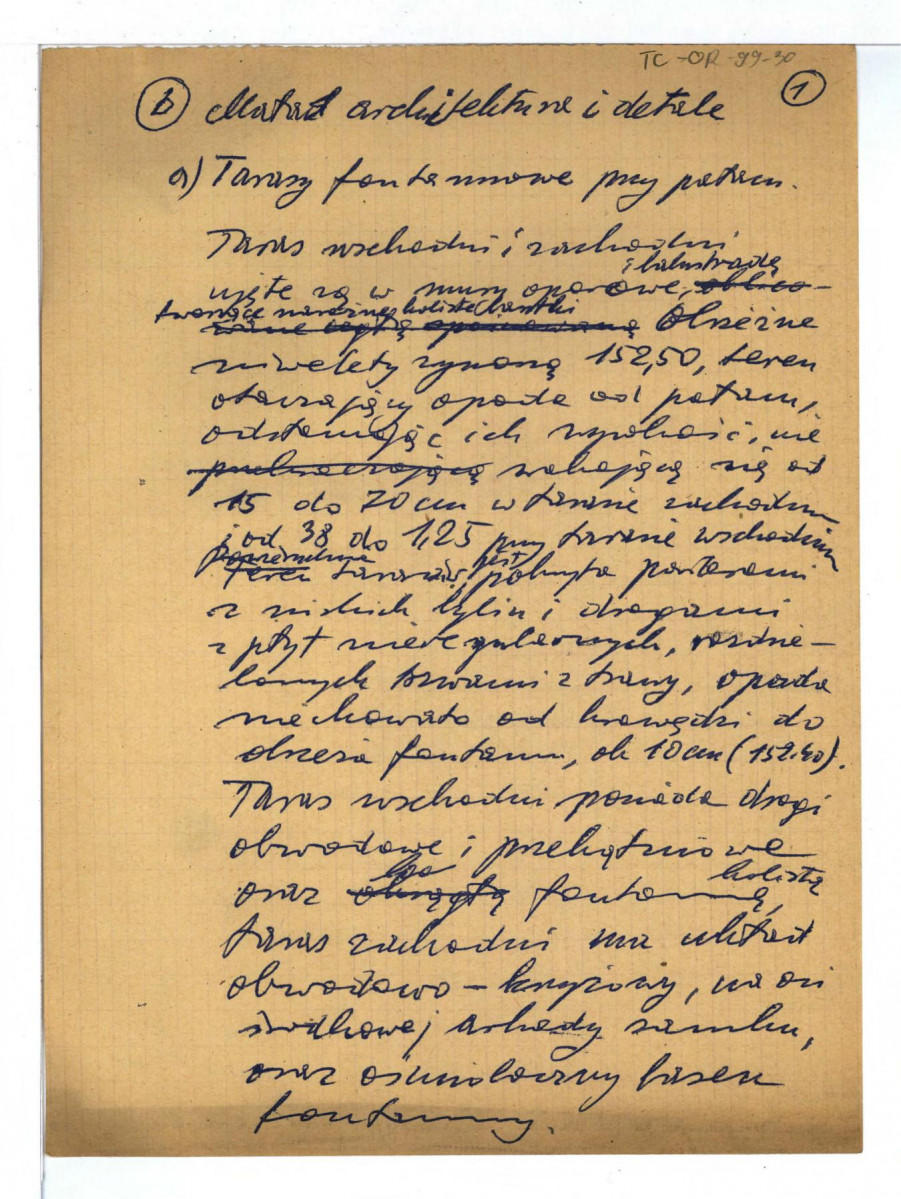 TC-OR-99-30
B Mała architektura i detale 1
a) Tarasy fontannowe przy pałacu.
Taras wschodni i zachodni
i balustradę
ujęte są w mury oporowe, oblico-
tworzące narożne koliste
wane cegłą Obrzeżne
niwelety wynoszą 152,50, teren
otaczający opada od pałacu,
odsłaniając ich wysokość, nie
przekraczającą wahającą się od
15 do 70 cm w tarasie zachodnim
i od 38 do 1,25 przy tarasie wschodnim
jest
teren tarasów, pokryta parterami
z niskich bylin i drogami
z płyt nieregularnych, rozdzie-
lonych szwami z trawy, opada
nieckowato od krawędzi do
obrzeża fontann, ok 10 cm (152.40).
Taras wschodni posiada drogi
obwodowe i przekątniowe
kolistą
oraz okrągłą fontanną,
taras zachodni ma układ
obwodowo - krzyżowy, na osi
środkowej arkady zamku,
oraz ośmioboczny basen
fontanny.